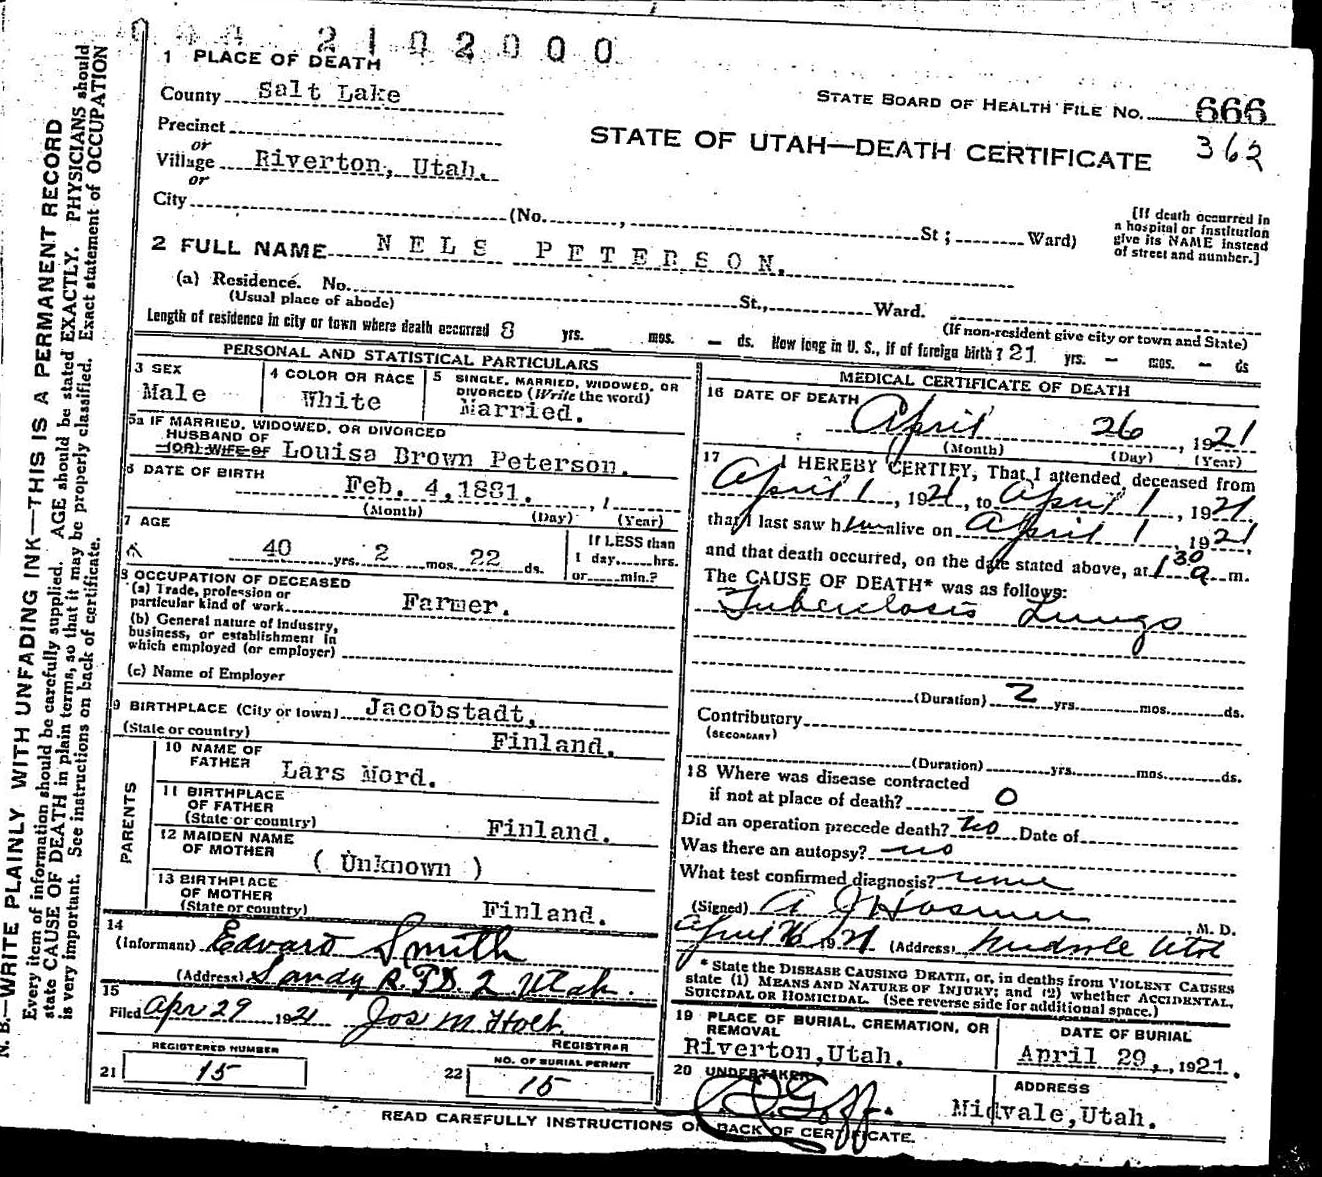 2102000
1 PLACE OF DEATH
County Salt Lake
STATE BOARD OF HEALTH FILE NO. 666
362
Precinct
or
Village Riverton, Utah.
or
City (No. , St ; Ward)
STATE OF UTAH—DEATH CERTIFICATE
[If death occurred in
a hospital or institution
give its NAME instead
of street and number.]
2 FULL NAME NELS PETERSON.
(a) Residence. No. St., Ward.
(Usual place of abode)
(If non-resident give city or town and State)
Length of residence in city or town where death occurred 8 yrs. mos. — ds. How long in U. S., if of foreign birth ? 21 yrs. — mos. — ds
PERSONAL AND STATISTICAL PARTICULARS
3 SEX
Male
4 COLOR OR RACE
White
5 SINGLE, MARRIED, WIDOWED, OR
DIVORCED (Write the word)
Married.
5a IF MARRIED, WIDOWED, OR DIVORCED
HUSBAND OF
(OR) WIFE OF Louisa Brown Peterson.
6 DATE OF BIRTH
Feb. 4,1881. , 1
(Month) (Day) (Year)
7 AGE
40 yrs. 2 mos. 22 ds.
If LESS than
1 day, hrs.
or min.?
8 OCCUPATION OF DECEASED
(a) Trade, profession or
particular kind of work Farmer.
(b) General nature of Industry,
business, or establishment in
which employed (or employer)
(c) Name of Employer
9 BIRTHPLACE (City or town) Jacobstadt,
(State or country) Finland.
PARENTS
10 NAME OF
FATHER Lars Mord.
11 BIRTHPLACE
OF FATHER
(State or country) Finland.
12 MAIDEN NAME
OF MOTHER ( Unknown )
13 BIRTHPLACE
OF MOTHER
(State or country) Finland.
14
(Informant) Edward Smith
(Address) Sandy R.F.D. 2 Utah.
15
Filed Apr 29 1921 Jos M Holt
REGISTRAR
REGISTERED NUMBER
21 15
NO. OF BURIAL PERMIT
22 15
MEDICAL CERTIFICATE OF DEATH
16 DATE OF DEATH
April 26 , 1921
(Month) (Day) (Year)
17 I HEREBY CERTIFY, That I attended deceased from
April 1 , 1921, to April 1 , 1921
that I last saw him alive on April 1 , 1921,
and that death occurred, on the date stated above, at 1 30 a m.
The CAUSE OF DEATH* was as follows:
Tuberclosis Lungs
(Duration) 2 yrs. mos. ds.
Contributory
(SECONDARY)
(Duration) yrs. mos. ds.
18 Where was disease contracted
if not at place of death? 0
Did an operation precede death? no Date of
Was there an autopsy? no
What test confirmed diagnosis? none
(Signed) A J Hosmer , M. D.
April 26 1921 (Address) Midvale Utah
* State the DISEASE CAUSING DEATH, or, in deaths from VIOLENT CAUSES
state (1) MEANS AND NATURE OF INJURY; and (2) whether ACCIDENTAL,
SUICIDAL OR HOMICIDAL. (See reverse side for additional space.)
19 PLACE OF BURIAL, CREMATION, OR
REMOVAL
Riverton,Utah.
DATE OF BURIAL
April 29, , 1921.
20 UNDERTAKER
Goff.
ADDRESS
Midvale,Utah.
READ CAREFULLY INSTRUCTIONS ON BACK OF CERTIFICATE.
N. B.—WRITE PLAINLY WITH UNFADING INK—THIS IS A PERMANENT RECORD
Every item of information should be carefully supplied. AGE should be stated EXACTLY. PHYSICIANS should
state CAUSE OF DEATH in plain terms, so that it may be properly classified. Exact statement of OCCUPATION
is very important. See instructions on back of certificate.